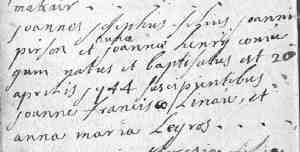 joannes josephus filius joannis
pirson et joannæ henry coniu
gum natus et baptisatus est 20
aprilis 1744 suscipientibus
joanne francisco Linair, et
anna maria Leyros